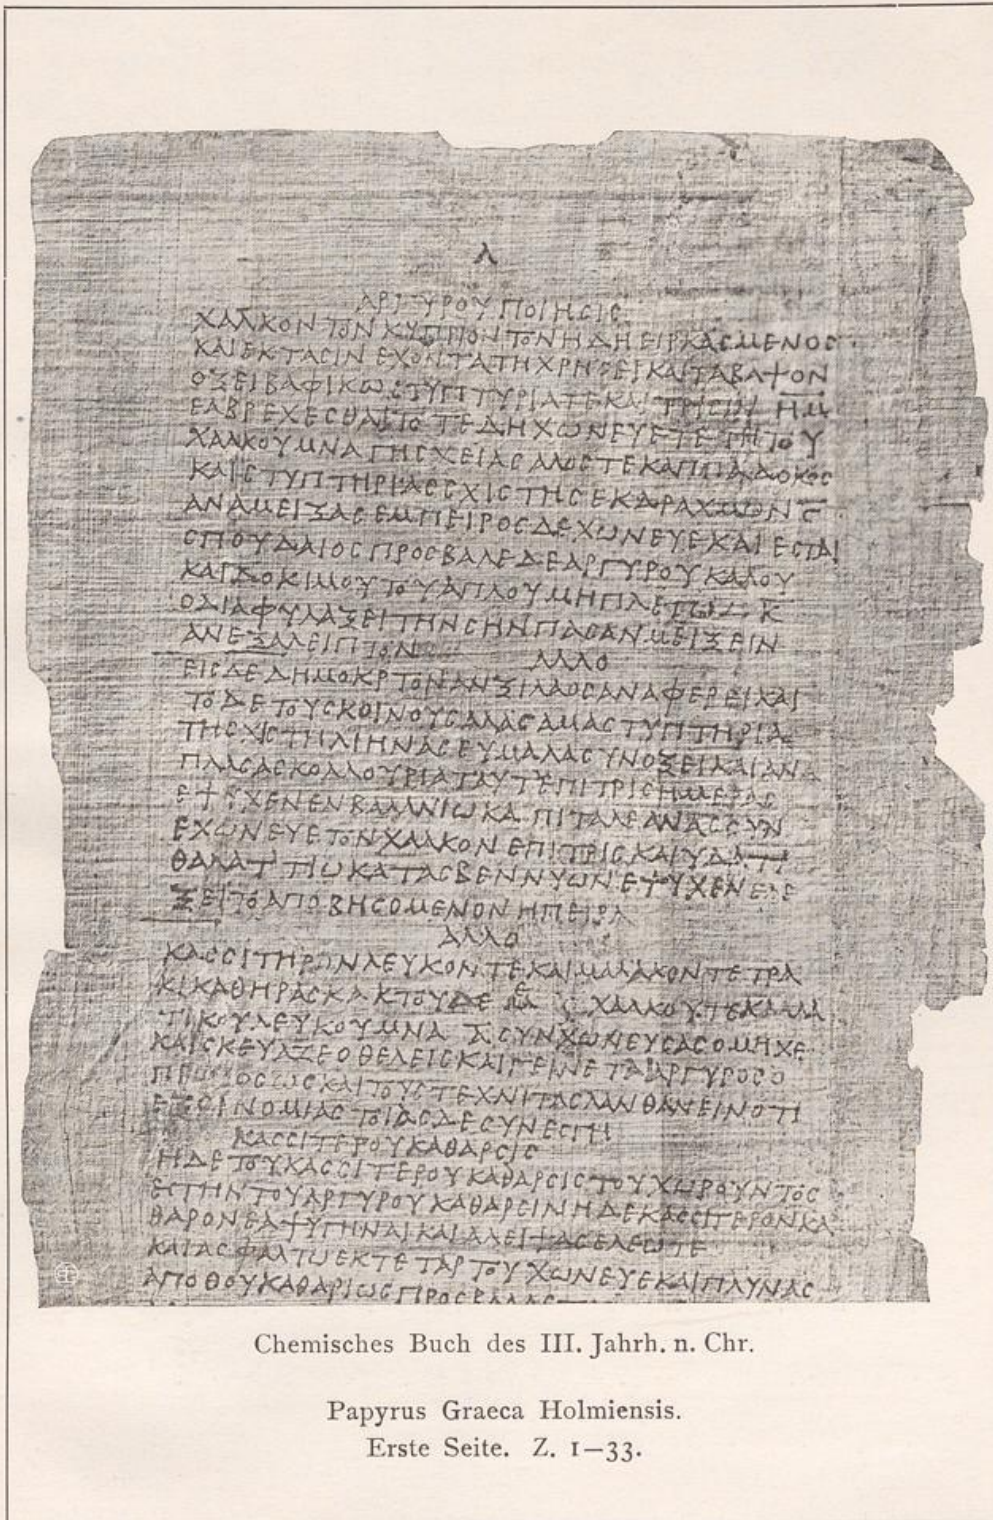 Α
ΑΡΓΥΡΟΥ ΠΟΙΗCΙC
ΧΑΛΚΟΝ ΤΟΝ ΚΥΠΡΙΟΝ ΤΟΝ ΗΔΗ ΕΙΡΓΑCΜΕΝΟC
ΚΑΙ ΕΚΤΑCΙΝ ΕΧΟΝΤΑ ΤΗ ΧΡΗCΕΙ ΚΑΤΑΒΑΨΟΝ
ΟΞΕΙ ΒΑΦΙΚΩ CΤΥΠΤΥΡΙΑ ΤΕ ΚΑΙ ΤΡΙCΙΝ ΗΜ
ΕΑ ΒΡΕΧΕCΘΑΙ ΤΟΤΕ ΔΗ ΧΩΝΕΥΕ ΤΟΥ
ΧΑΛΚΟΥ ΜΝΑ ΓΗC ΧΕΙΑC ΑΛΟC ΤΕ ΚΑΠΠΑΔΟΚΟC
ΚΑΙ CΤΥΠΤΗΡΙΑC CΧΙCΤΗC ΕΚ ΔΡΑΧΜΩΝ
ΑΝΑΜΕΙΞΑC ΕΜΠΕΙΡΟC ΔΕ ΧΩΝΕΥΕ ΚΑΙ ΕCΤΑΙ
CΠΟΥΔΑΙΟC ΠΡΟCΒΑΛΕ ΔΕ ΑΡΓΥΡΟΥ ΚΑΛΟΥ
ΚΑΙ ΔΟΚΙΜΟΥ ΤΟΥ ΑΠΛΟΥ ΜΗ ΠΛΕΙΩ Κ
Ο ΔΙΑΦΥΛΑΞΕΙ ΤΗΝ CΗΝ ΠΑCΑΝ ΜΕΙΞΕΙΝ
ΑΝΕΞΑΛΕΙΠΤΟΝ
ΑΛΛΟ
ΕΙC ΔΕ ΔΗΜΟΚΡΤΟΝ ΑΝΞΙΛΑΟC ΑΝΑΦΕΡΕΙ ΚΑΙ
ΤΟΔΕ ΤΟΥC ΚΟΙΝΟΥC ΑΛΑC ΑΜΑ CΤΥΠΤΗΡΙΑ
ΤΗ CΧΙCΤΗ ΛΙΗΝΑC ΕΥ ΜΑΛΑ CΥΝ ΟΞΕΙ ΚΑΙ ΑΝΑ
ΠΛΑCΑC ΚΟΛΛΟΥΡΙΑ ΤΑΥΤ ΕΠΙ ΤΡΙC ΗΜΕΡΑC
ΕΨΥΧΕΝ ΕΝ ΒΑΛΑΝΙΩ ΚΑΠΙΤΑ ΛΕΑΝΑC CΥΝ
ΕΧΩΝΕΥΕ ΤΟΝ ΧΑΛΚΟΝ ΕΠΙ ΤΡΙC ΚΑΙ ΥΔΑΤΙ
ΘΑΛΑΤΤΙΩ ΚΑΤΑCΒΕΝΝΥΩΝ ΕΨΥΧΕΝ
ΞΕΙ ΤΟ ΑΠΟΒΗCΟΜΕΝΟΝ Η ΠΕΙΡΑ
ΑΛΛΟ
ΚΑCCΙΤΗΡΟΝ ΛΕΥΚΟΝ ΤΕ ΚΑΙ ΜΑΛΑΚΟΝ ΤΕΤΡΑ
ΚΙ ΚΑΘΗΡΑC ΚΑΚ ΤΟΥΔΕ ΧΑΛΚΟΥ ΤΕ ΚΑΛΛΑ
ΤΙΚΟΥ ΛΕΥΚΟΥ ΜΝΑ CΥΝΧΩΝΕΥCΑC CΜΗΧΕ
ΚΑΙ CΚΕΥΑΖΕ Ο ΘΕΛΕΙC ΚΑΙ ΓΕΙΝΕΤΑΙ ΑΡΓΥΡΟC Ο
ΠΡΩΤΟC ΩC ΚΑΙ ΤΟΥC ΤΕΧΝΙΤΑC ΛΑΝΘΑΝΕΙΝ ΟΤΙ
ΕΞ ΟΙΝΟΜΙΑC ΤΟΙΑCΔΕ CΥΝΕCΤΗ
ΚΑCCΙΤΕΡΟΥ ΚΑΘΑΡCΙC
Η ΔΕ ΤΟΥ ΚΑCCΙΤΕΡΟΥ ΚΑΘΑΡCΙC ΤΟΥ ΧΩΡΟΥΝΤΟC
ΕΙC ΤΗΝ ΤΟΥ ΑΡΓΥΡΟΥ ΚΑΘΑΡCΙΝ ΗΔΕ ΚΑCCΙΤΕΡΟΝ ΚΑ
ΘΑΡΟΝ ΕΑ ΨΥΓΗΝΑΙ ΚΑΙ ΑΛΕΙΨΑC ΕΛΕΩ ΤΕ
ΚΑΙ ΑCΦΑΛΤΩ ΕΚ ΤΕΤΑΡΤΟΥ ΧΩΝΕΥΕ ΚΑΙ ΠΛΥΝΑC
ΑΠΟΘΟΥ ΚΑΘΑΡΙΩC ΠΡΟCΒΑΛΛΑC
Chemisches Buch des III. Jahrh. n. Chr.
Papyrus Graeca Holmiensis.
Erste Seite. Z. 1—33.